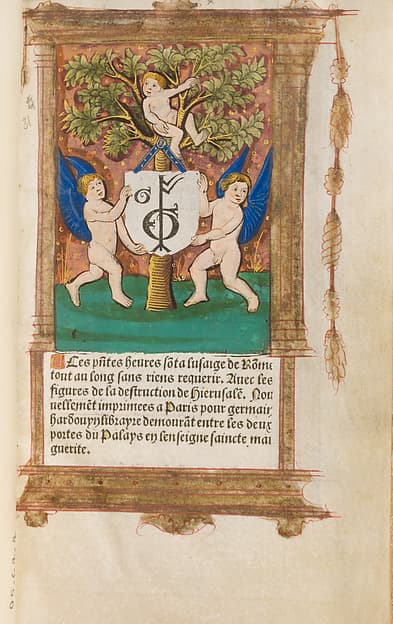 Ces pñtes heures sõt a lusaige de Rõme
tout au long sans riens requerir. Avec les
figures de la destruction de Hierusalẽ. Nou
vellemẽt imprimees a Paris pour germain
hardouyn librayre demourãt entre les deux
portes du Palays en lenseigne saincte mar
guerite.